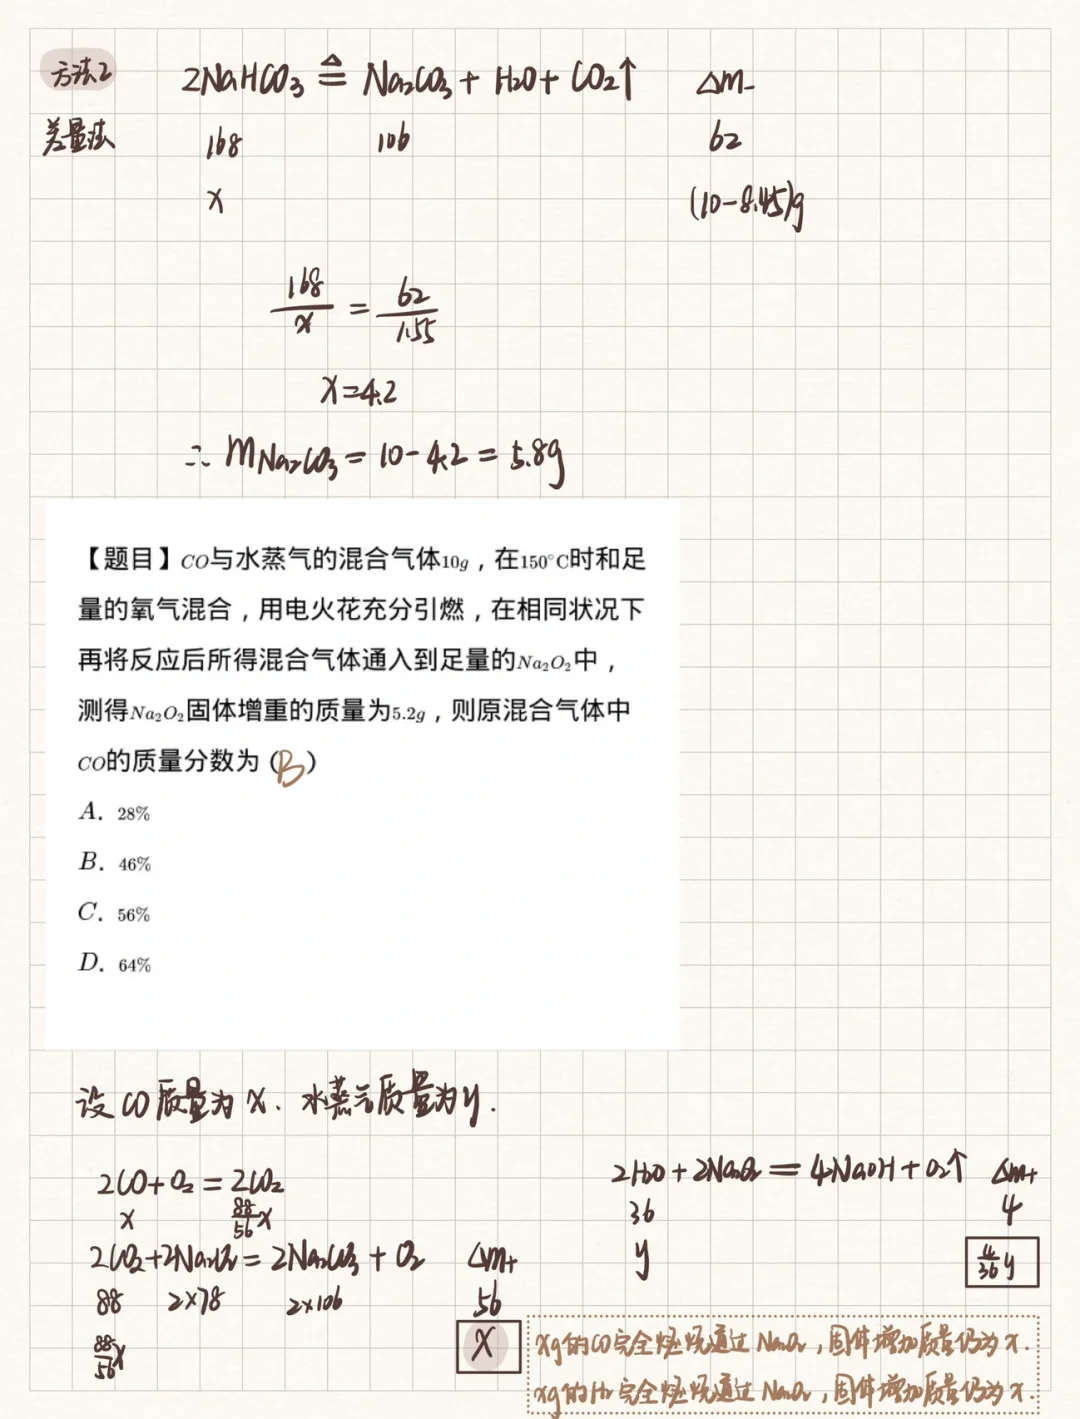 方法2
2NaHCO₃ ≜ Na₂CO₃ + H₂O + CO₂↑ Δm-
差量法
168 106 62
x (10-8.45)g
168/x = 62/1.55
x=4.2
∴ mNa₂CO₃ = 10-4.2 = 5.8g
【题目】CO与水蒸气的混合气体10g，在150°C时和足
量的氧气混合，用电火花充分引燃，在相同状况下
再将反应后所得混合气体通入到足量的Na₂O₂中，
测得Na₂O₂固体增重的质量为5.2g，则原混合气体中
CO的质量分数为（B）
A. 28%
B. 46%
C. 56%
D. 64%
设CO质量为x. 水蒸气质量为y.
2CO+O₂=2CO₂
x 88/56x
2CO₂+2Na₂O₂=2Na₂CO₃+O₂ Δm+
88 2×78 2×106 56
88/56x x
2H₂O+2Na₂O₂=4NaOH+O₂↑ Δm+
36 4
y 4/36y
xg的CO完全燃烧通过Na₂O₂，固体增加质量仍为x.
xg的H₂完全燃烧通过Na₂O₂，固体增加质量仍为x.